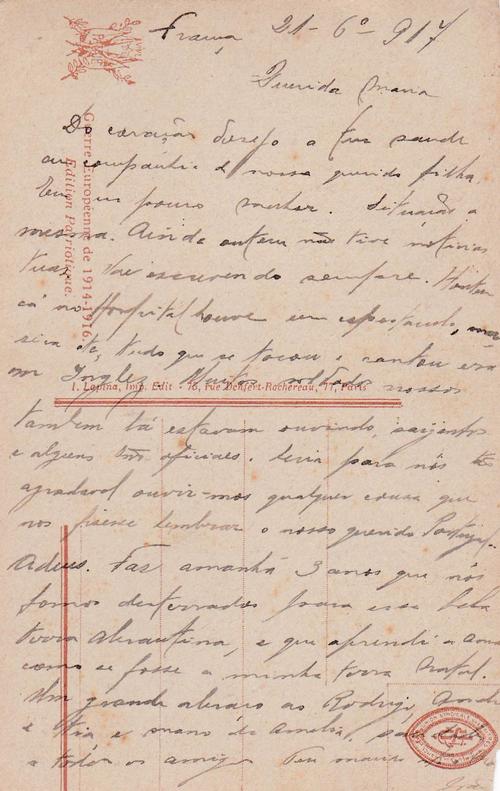 França, 21-6º-917
Querida Maria
Do coração desejo a tua saude
em companhia de nossa querida filha.
Eu um pouco melhor. Situação a
mesma. Ainda ontem não tive noticias
tuas. Vai escrevendo sempre. Hontem
cá no Hospital houve um espectaculo,
tudo que se tocou e cantou era
em Inglez. Muitos soldados nossos
tambem lá estavam ouvindo, sarjentos
e alguns officiaes. Seria para nós
agradavel ouvir-mos qualquer cousa que
nos fizesse lembrar o nosso querido Portugal.
Adeus. Faz amanhã 3 anos que nós
fomos desterrados para essa bela
terra Abrantina, e que aprendi a
como se fosse a minha terra natal.
Um grande abraço ao Rodrigo,
e Tia e mano da Amelia,
a todos os amigos Teu marido
Guerre Européenne de 1914-1916.
Edition Patriotique.
I. Lapina, Imp. Edit - 76, rue Denfert-Rochereau, 77, Paris